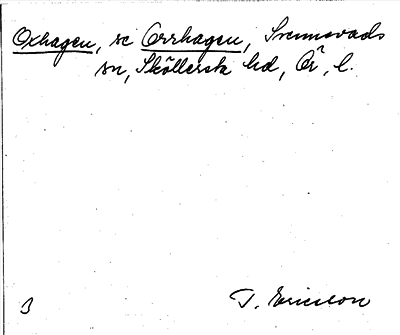 Oxhagen, se Orrhagen, Svennevads
sn, Sköllersta hd, Ör, l.
T. Ericsson